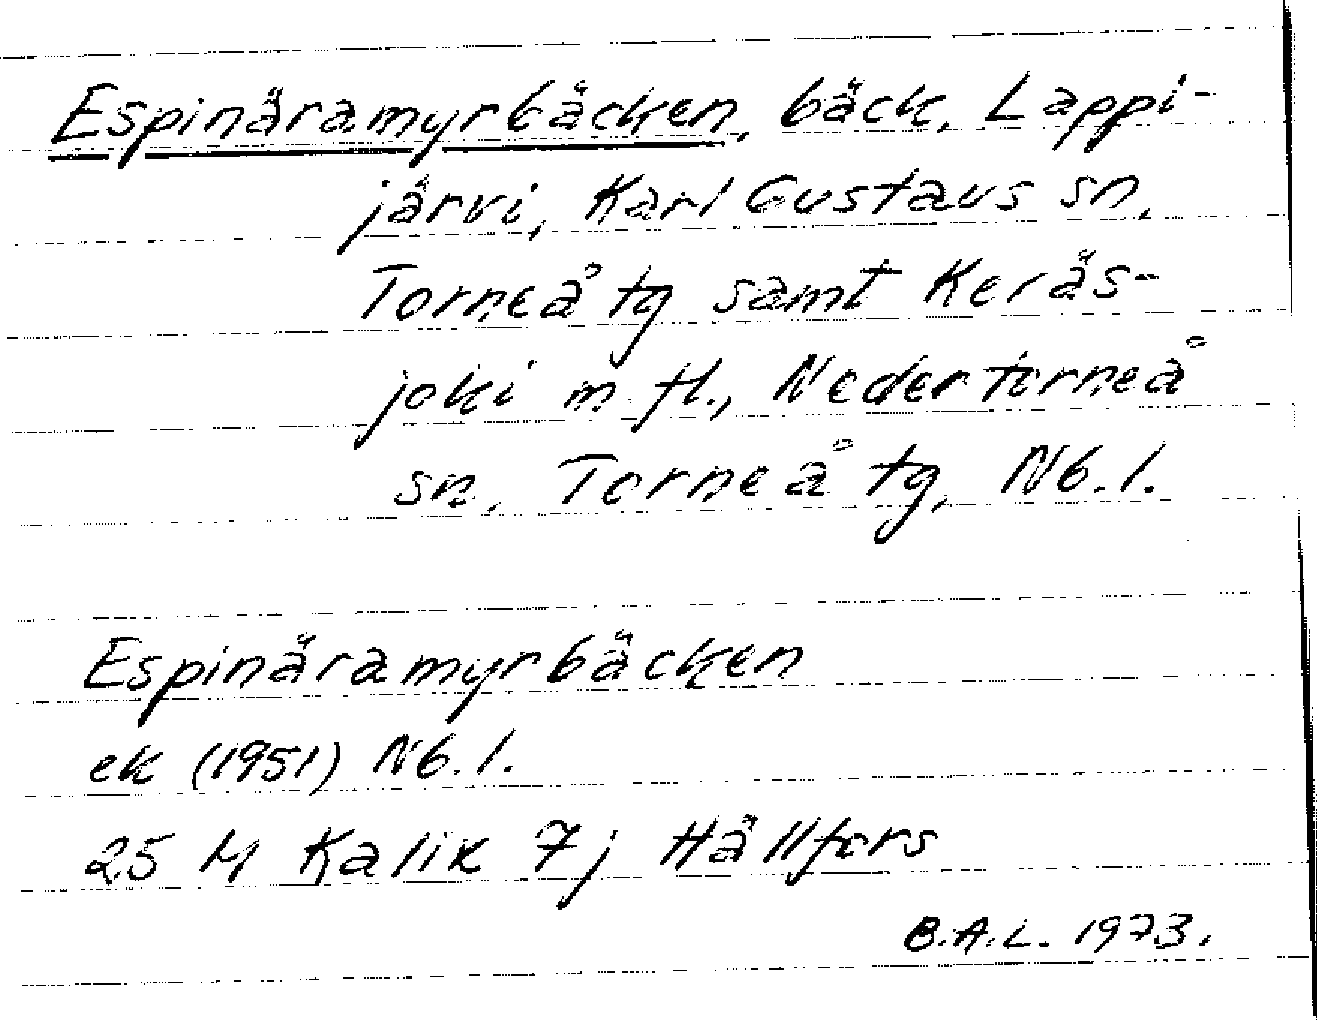 Espinäramyrbäcken, bäck, Lappi-
järvi, Karl Gustavs sn,
Torneå tg samt Keräs-
joki m fl., Nedertorneå
sn, Torneå tg, Nb. l.
Espinäramyrbäcken
ek (1951) Nb. l.
25 M Kalix 7j Hällfors
B.A.L. 1973.